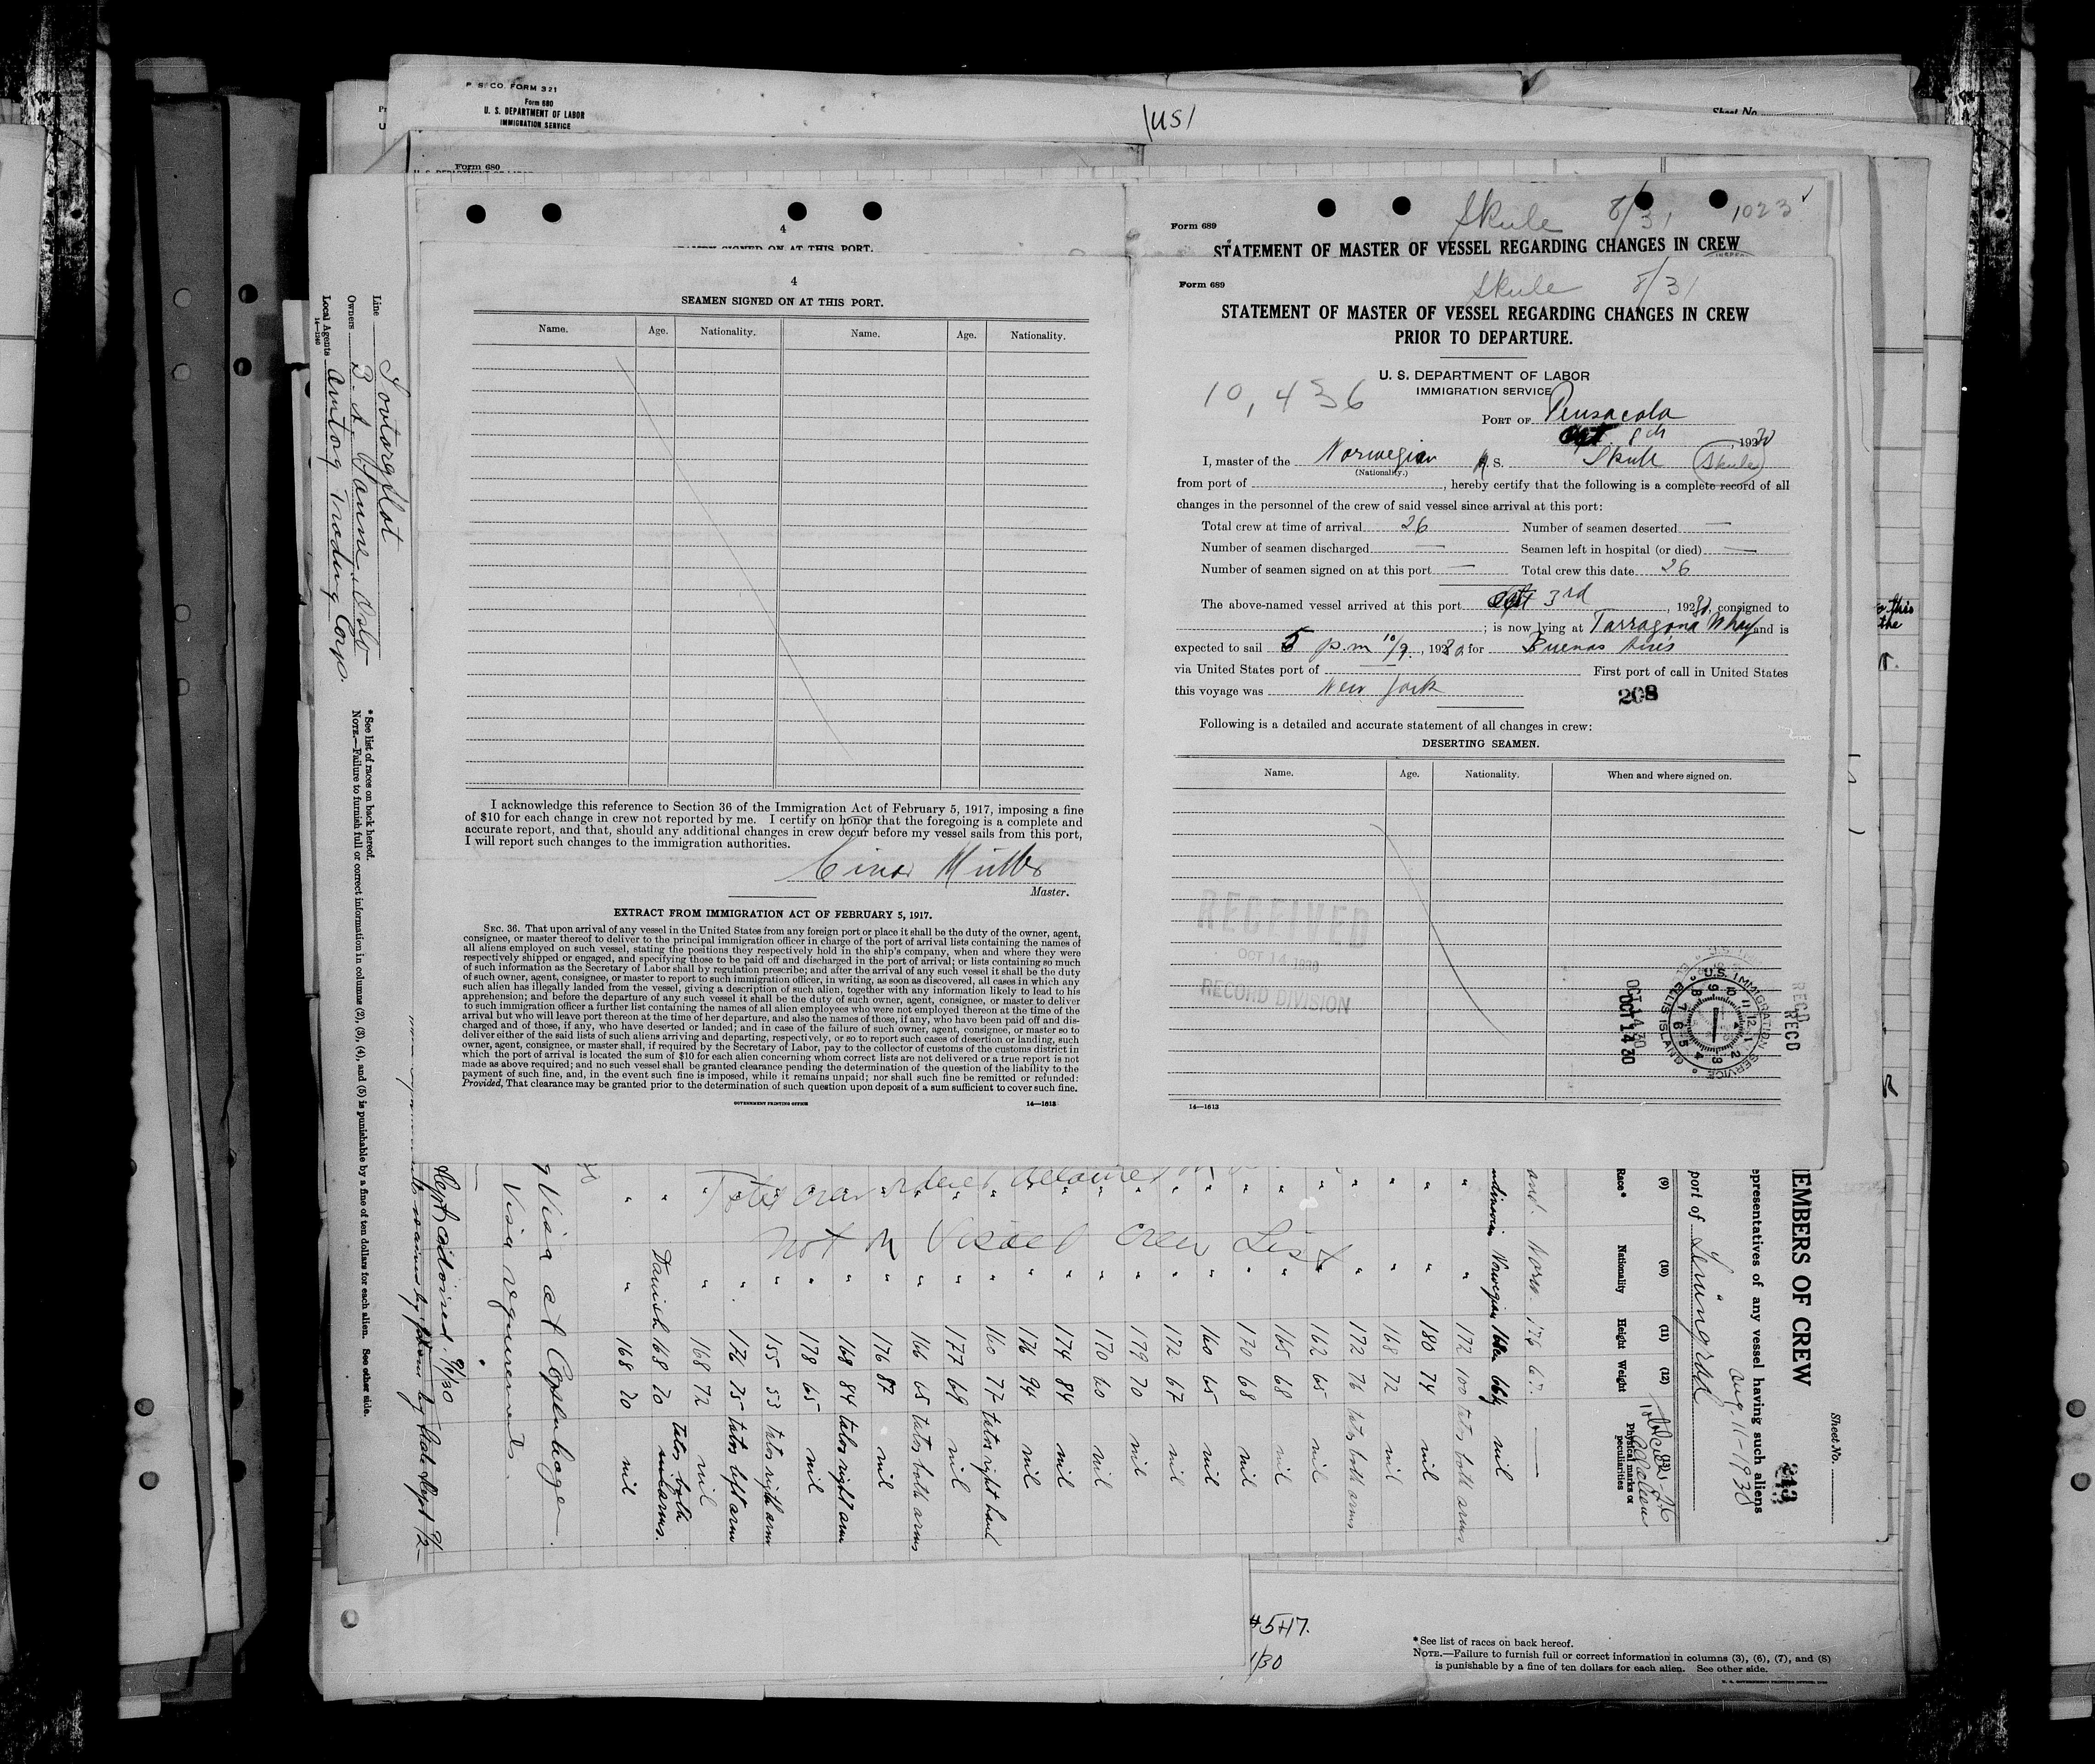 P. S. CO. FORM 321
Form 680
U. S. DEPARTMENT OF LABOR
IMMIGRATION SERVICE
Sheet No.
Form 680
4
SEAMEN SIGNED ON AT THIS PORT.
Form 689
Skule 8/31 1023
STATEMENT OF MASTER OF VESSEL REGARDING CHANGES IN CREW
4
SEAMEN SIGNED ON AT THIS PORT.
Name. Age. Nationality. Name. Age. Nationality.
I acknowledge this reference to Section 36 of the Immigration Act of February 5, 1917, imposing a fine
of $10 for each change in crew not reported by me. I certify on honor that the foregoing is a complete and
accurate report, and that, should any additional changes in crew occur before my vessel sails from this port,
I will report such changes to the immigration authorities.
Master.
EXTRACT FROM IMMIGRATION ACT OF FEBRUARY 5, 1917.
SEC. 36. That upon arrival of any vessel in the United States from any foreign port or place it shall be the duty of the owner, agent,
consignee, or master thereof to deliver to the principal immigration officer in charge of the port of arrival lists containing the names of
all aliens employed on such vessel, stating the positions they respectively hold in the ship's company, when and where they were
respectively shipped or engaged, and specifying those to be paid off and discharged in the port of arrival; or lists containing so much
of such information as the Secretary of Labor shall by regulation prescribe; and after the arrival of any such vessel it shall be the duty
of such owner, agent, consignee, or master to report to such immigration officer, in writing, as soon as discovered, all cases in which any
such alien has illegally landed from the vessel, giving a description of such alien, together with any information likely to lead to his
apprehension; and before the departure of any such vessel it shall be the duty of such owner, agent, consignee, or master to deliver
to such immigration officer a further list containing the names of all alien employees who were not employed thereon at the time of the
arrival but who will leave port thereon at the time of her departure, and also the names of those, if any, who have been paid off and dis-
charged and of those, if any, who have deserted or landed; and in case of the failure of such owner, agent, consignee, or master so to
deliver either of the said lists of such aliens arriving and departing, respectively, or so to report such cases of desertion or landing, such
owner, agent, consignee, or master shall, if required by the Secretary of Labor, pay to the collector of customs of the customs district in
which the port of arrival is located the sum of $10 for each alien concerning whom correct lists are not delivered or a true report is not
made as above required; and no such vessel shall be granted clearance pending the determination of the question of the liability to the
payment of such fine, and, in the event such fine is imposed, while it remains unpaid; nor shall such fine be remitted or refunded:
Provided, That clearance may be granted prior to the determination of such question upon deposit of a sum sufficient to cover such fine.
GOVERNMENT PRINTING OFFICE 14—1613
Form 689
Skule 8/31
STATEMENT OF MASTER OF VESSEL REGARDING CHANGES IN CREW
PRIOR TO DEPARTURE.
U. S. DEPARTMENT OF LABOR
IMMIGRATION SERVICE
10,436
PORT OF Pensacola
Oct. 8th 1930
I, master of the Norwegian S. S. Skule Skule
(Nationality.)
from port of , hereby certify that the following is a complete record of all
changes in the personnel of the crew of said vessel since arrival at this port:
Total crew at time of arrival 26 Number of seamen deserted —
Number of seamen discharged — Seamen left in hospital (or died) —
Number of seamen signed on at this port — Total crew this date 26
The above-named vessel arrived at this port Oct 3rd, 1930, consigned to
; is now lying at Tarragona Wharf and is
expected to sail 5 p.m 10/9, 1930 for Buenos Aires
via United States port of — First port of call in United States
this voyage was New York
208
Following is a detailed and accurate statement of all changes in crew:
DESERTING SEAMEN.
Name. Age. Nationality. When and where signed on.
RECEIVED
OCT 14 1930
RECORD DIVISION
U.S. IMMIGRATION SERVICE
ELLIS ISLAND
OCT 14 30
RECD
14—1613
Line Sovtorgflot
Owners
Local Agents Amtorg Trading Corp.
14—1240
* See list of races on back hereof.
NOTE.—Failure to furnish full or correct information in columns (2), (3), (4), and (5) is punishable by a fine of ten dollars for each alien. See other side.
Sheet No.
213
EMBERS OF CREW
epresentatives of any vessel having such aliens
Aug. 11-1930
port of Leningrad
(9) (10) (11) (12) (13)
Race* Nationality Height Weight Physical marks or peculiarities
and. Norw. 176 67 —
Norwegian nil
" " 172 100 tatos both arms
" " 180 74 nil
" " 168 72 nil
" " 172 76 tatos both arms
" " 162 65 nil
" " 165 68 nil
" " 170 68 nil
" " 160 65 nil
" " 172 67 nil
" " 179 70 nil
" " 170 60 nil
" " 174 84 nil
" " 176 94 nil
" " 160 77 tatos right hand
" " 177 69 nil
" " 166 65 tatos both arms
" " 176 87 nil
" " 168 84 tatos right arm
" " 178 65 nil
" " 155 53 tatos right arm
" " 176 75 tatos left arm
" " 168 72 nil
" Danish 168 70 tatos both arms.
" " 168 70 nil
Not on Visaed Crew List
Visa at Copenhagen.
Visa requirements.
#517.
1/30
* See list of races on back hereof.
NOTE.—Failure to furnish full or correct information in columns (3), (6), (7), and (8)
is punishable by a fine of ten dollars for each alien. See other side.